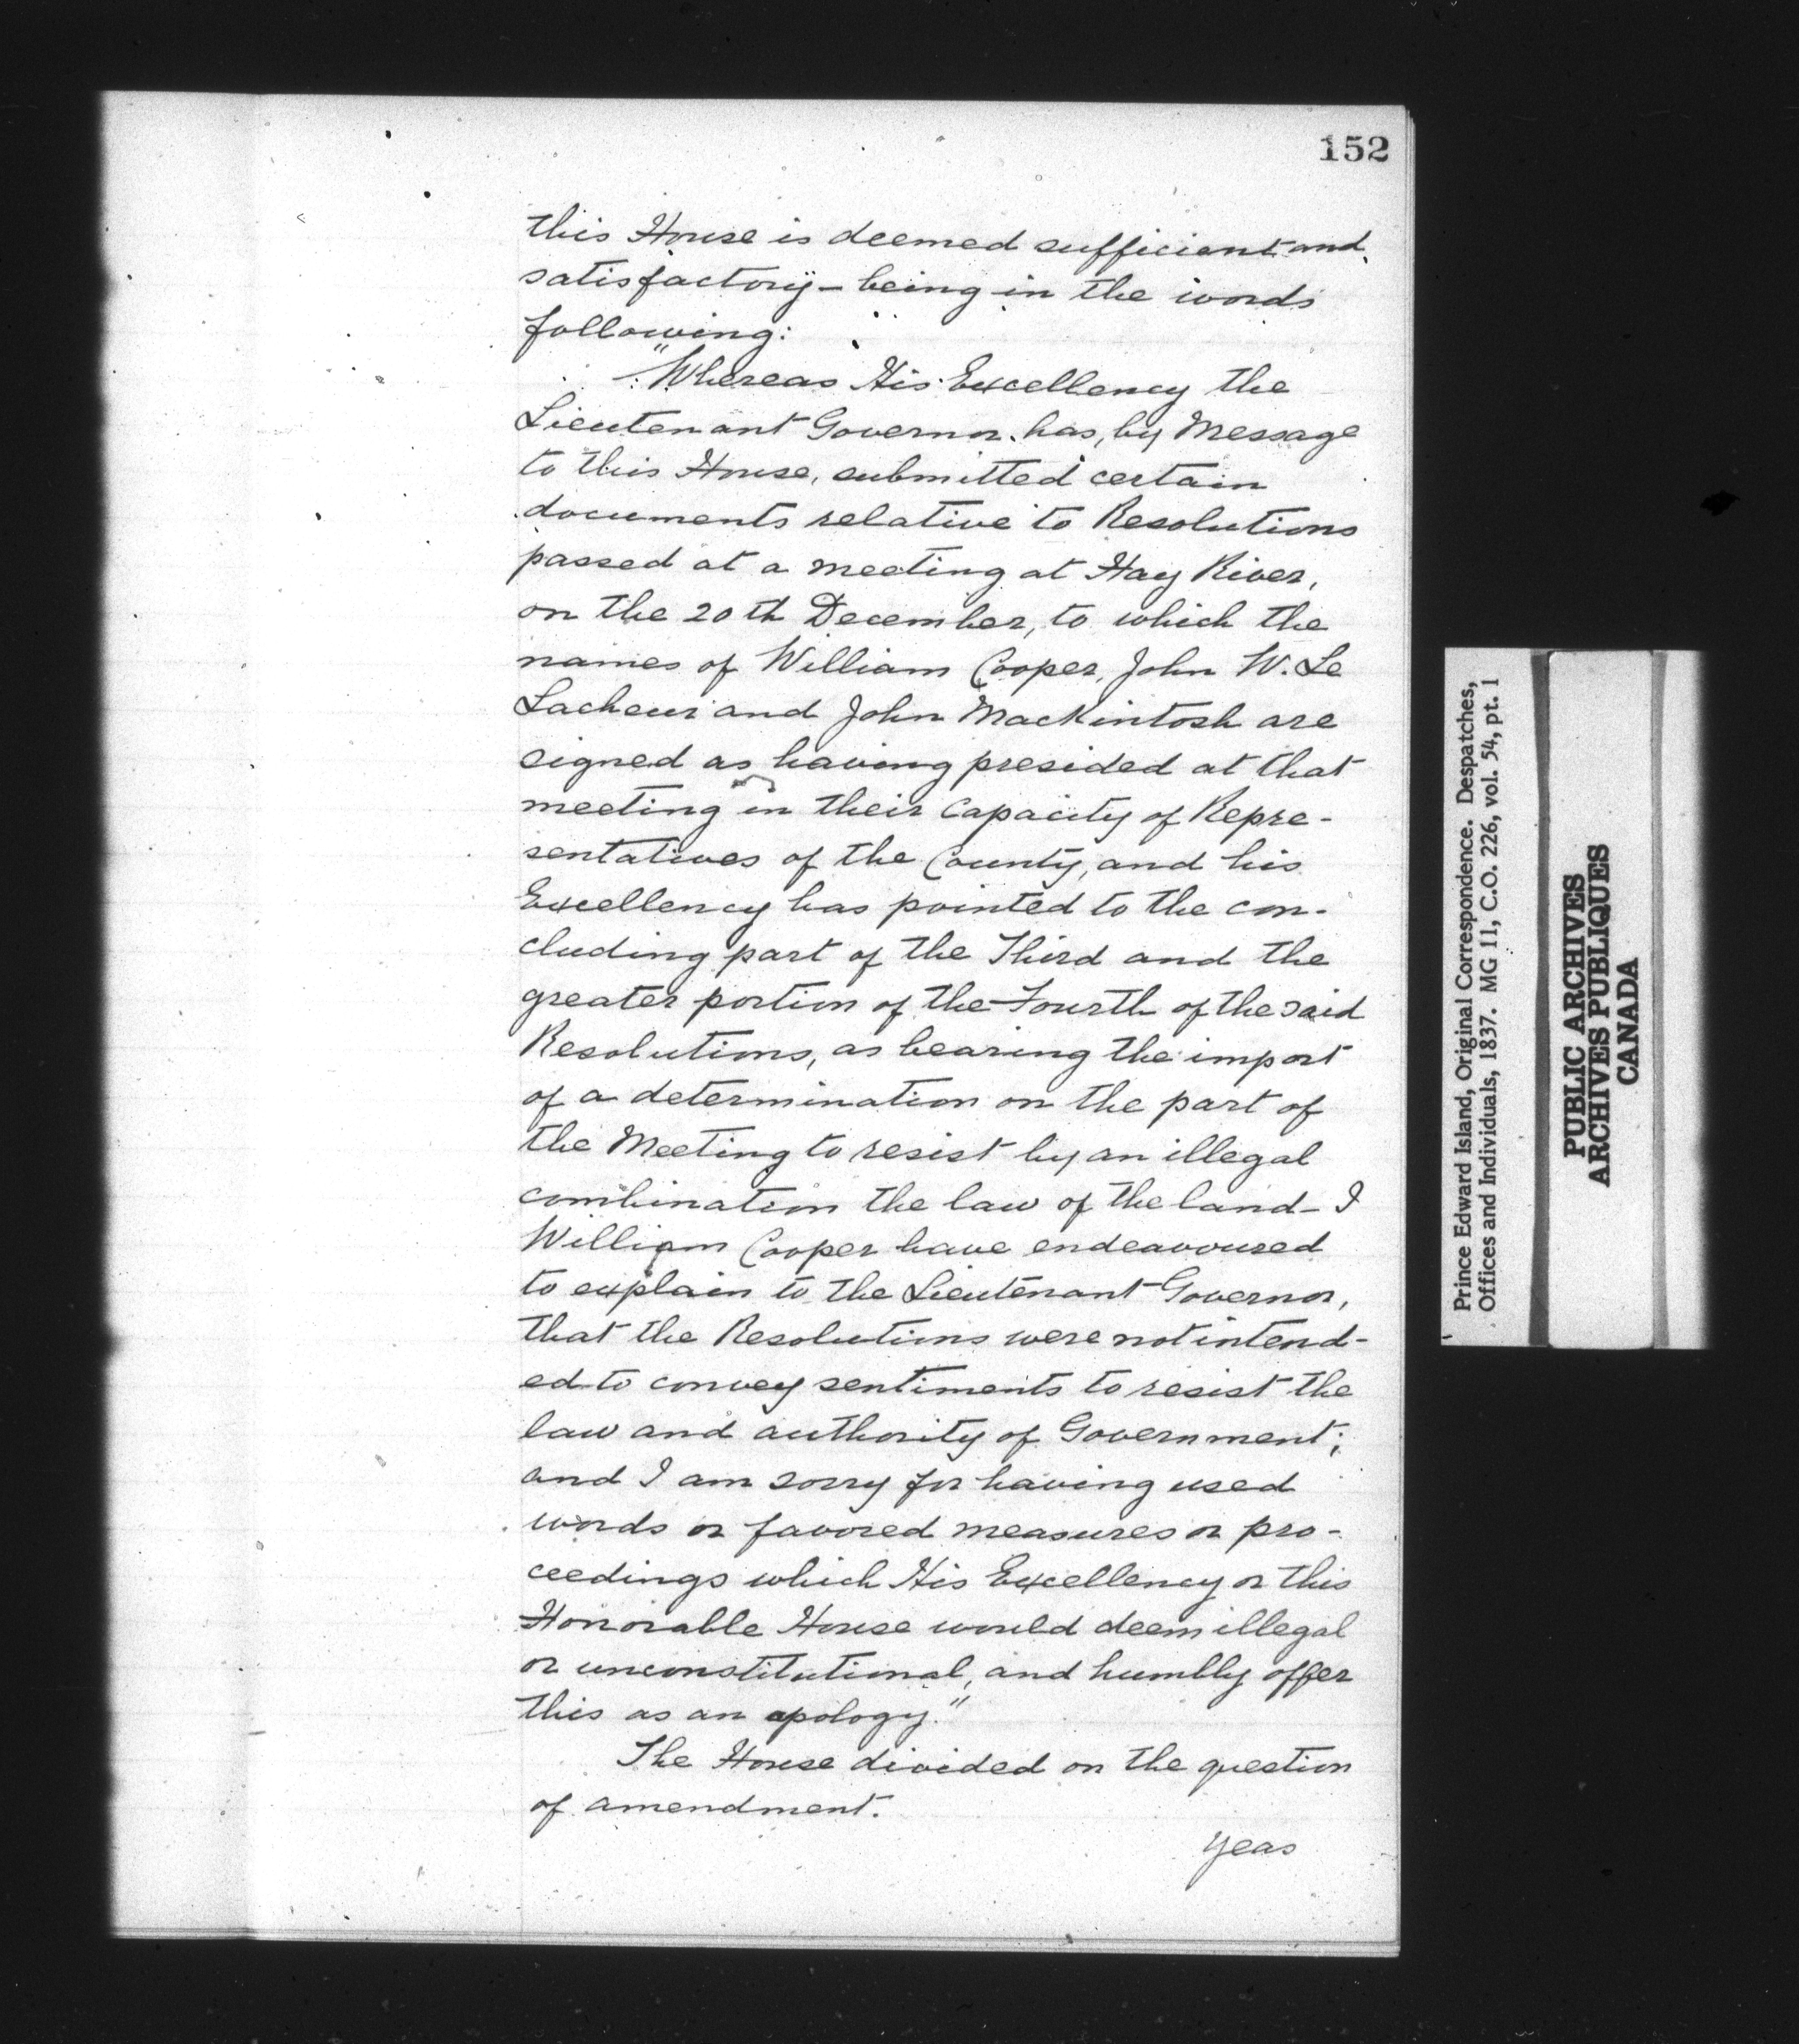 152
this House is deemed sufficient and
satisfactory - being in the words
following:
"Whereas His Excellency the
Lieutenant Governor has, by Message
to this House, submitted certain
documents relative to Resolutions
passed at a meeting at Hay River,
on the 20th December, to which the
names of William Cooper, John W. Le
Lacheur and John Mackintosh are
signed as having presided at that
meeting in their capacity of Repre-
sentatives of the County, and his
Excellency has pointed to the con-
cluding part of the Third and the
greater portion of the Fourth of the said
Resolutions, as bearing the import
of a determination on the part of
the Meeting to resist by an illegal
combination the law of the land - I
William Cooper have endeavoured
to explain to the Lieutenant Governor,
that the Resolutions were not intend-
ed to convey sentiments to resist the
law and authority of Government;
and I am sorry for having used
words or favored measures or pro-
ceedings which His Excellency or this
Honorable House would deem illegal
or unconstitutional, and humbly offer
this as an apology."
The House divided on the question
of amendment.
Yeas
Prince Edward Island, Original Correspondence. Despatches,
Offices and Individuals, 1837. MG 11, C.O. 226, vol. 54, pt. 1
PUBLIC ARCHIVES
ARCHIVES PUBLIQUES
CANADA